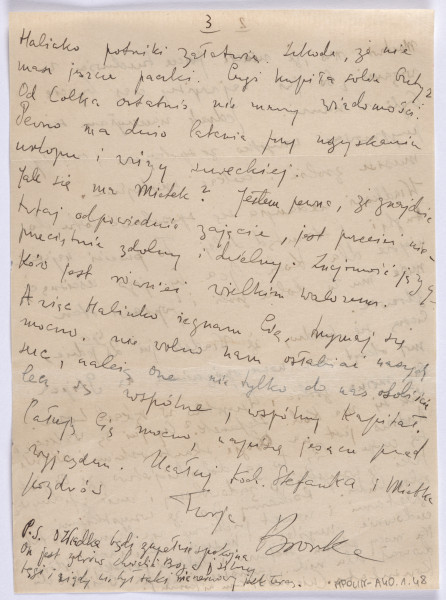 3 8
Halinko potniki załatwia. Szkoda, że nie
masz jeszcze paczki. Czyś kupiła sobie buty?
Od Lolka ostatnio nie mamy wiadomości.
Pewno ma dużo latania przy uzyskaniu
urlopu i wizy szwedzkiej.
Jak się ma Mietek? Jestem pewna, że znajdzie
tutaj odpowiednie zajęcie, jest przecież nie-
przeciętnie zdolny i dzielny. Znajomość języ-
ków jest również wielkim walorem.
A więc Halinko żegnam Cię, trzymaj się
mocno. nie wolno nam osłabiać naszych
serc, należą one nie tylko do nas osobiście
lecz są wspólne, wspólny kapitał.
Całuję Cię mocno, napiszę jeszcze przed
wyjazdem. Ucałuj Koch. Stefanka i Mietka
pozdrów
Twoja
Bronka
P.S. O Władka bądź zupełnie spokojna
On jest zdrów chwała Boga i silny
tęgi i nigdy nie był taki
APOLIN-A40.1.48